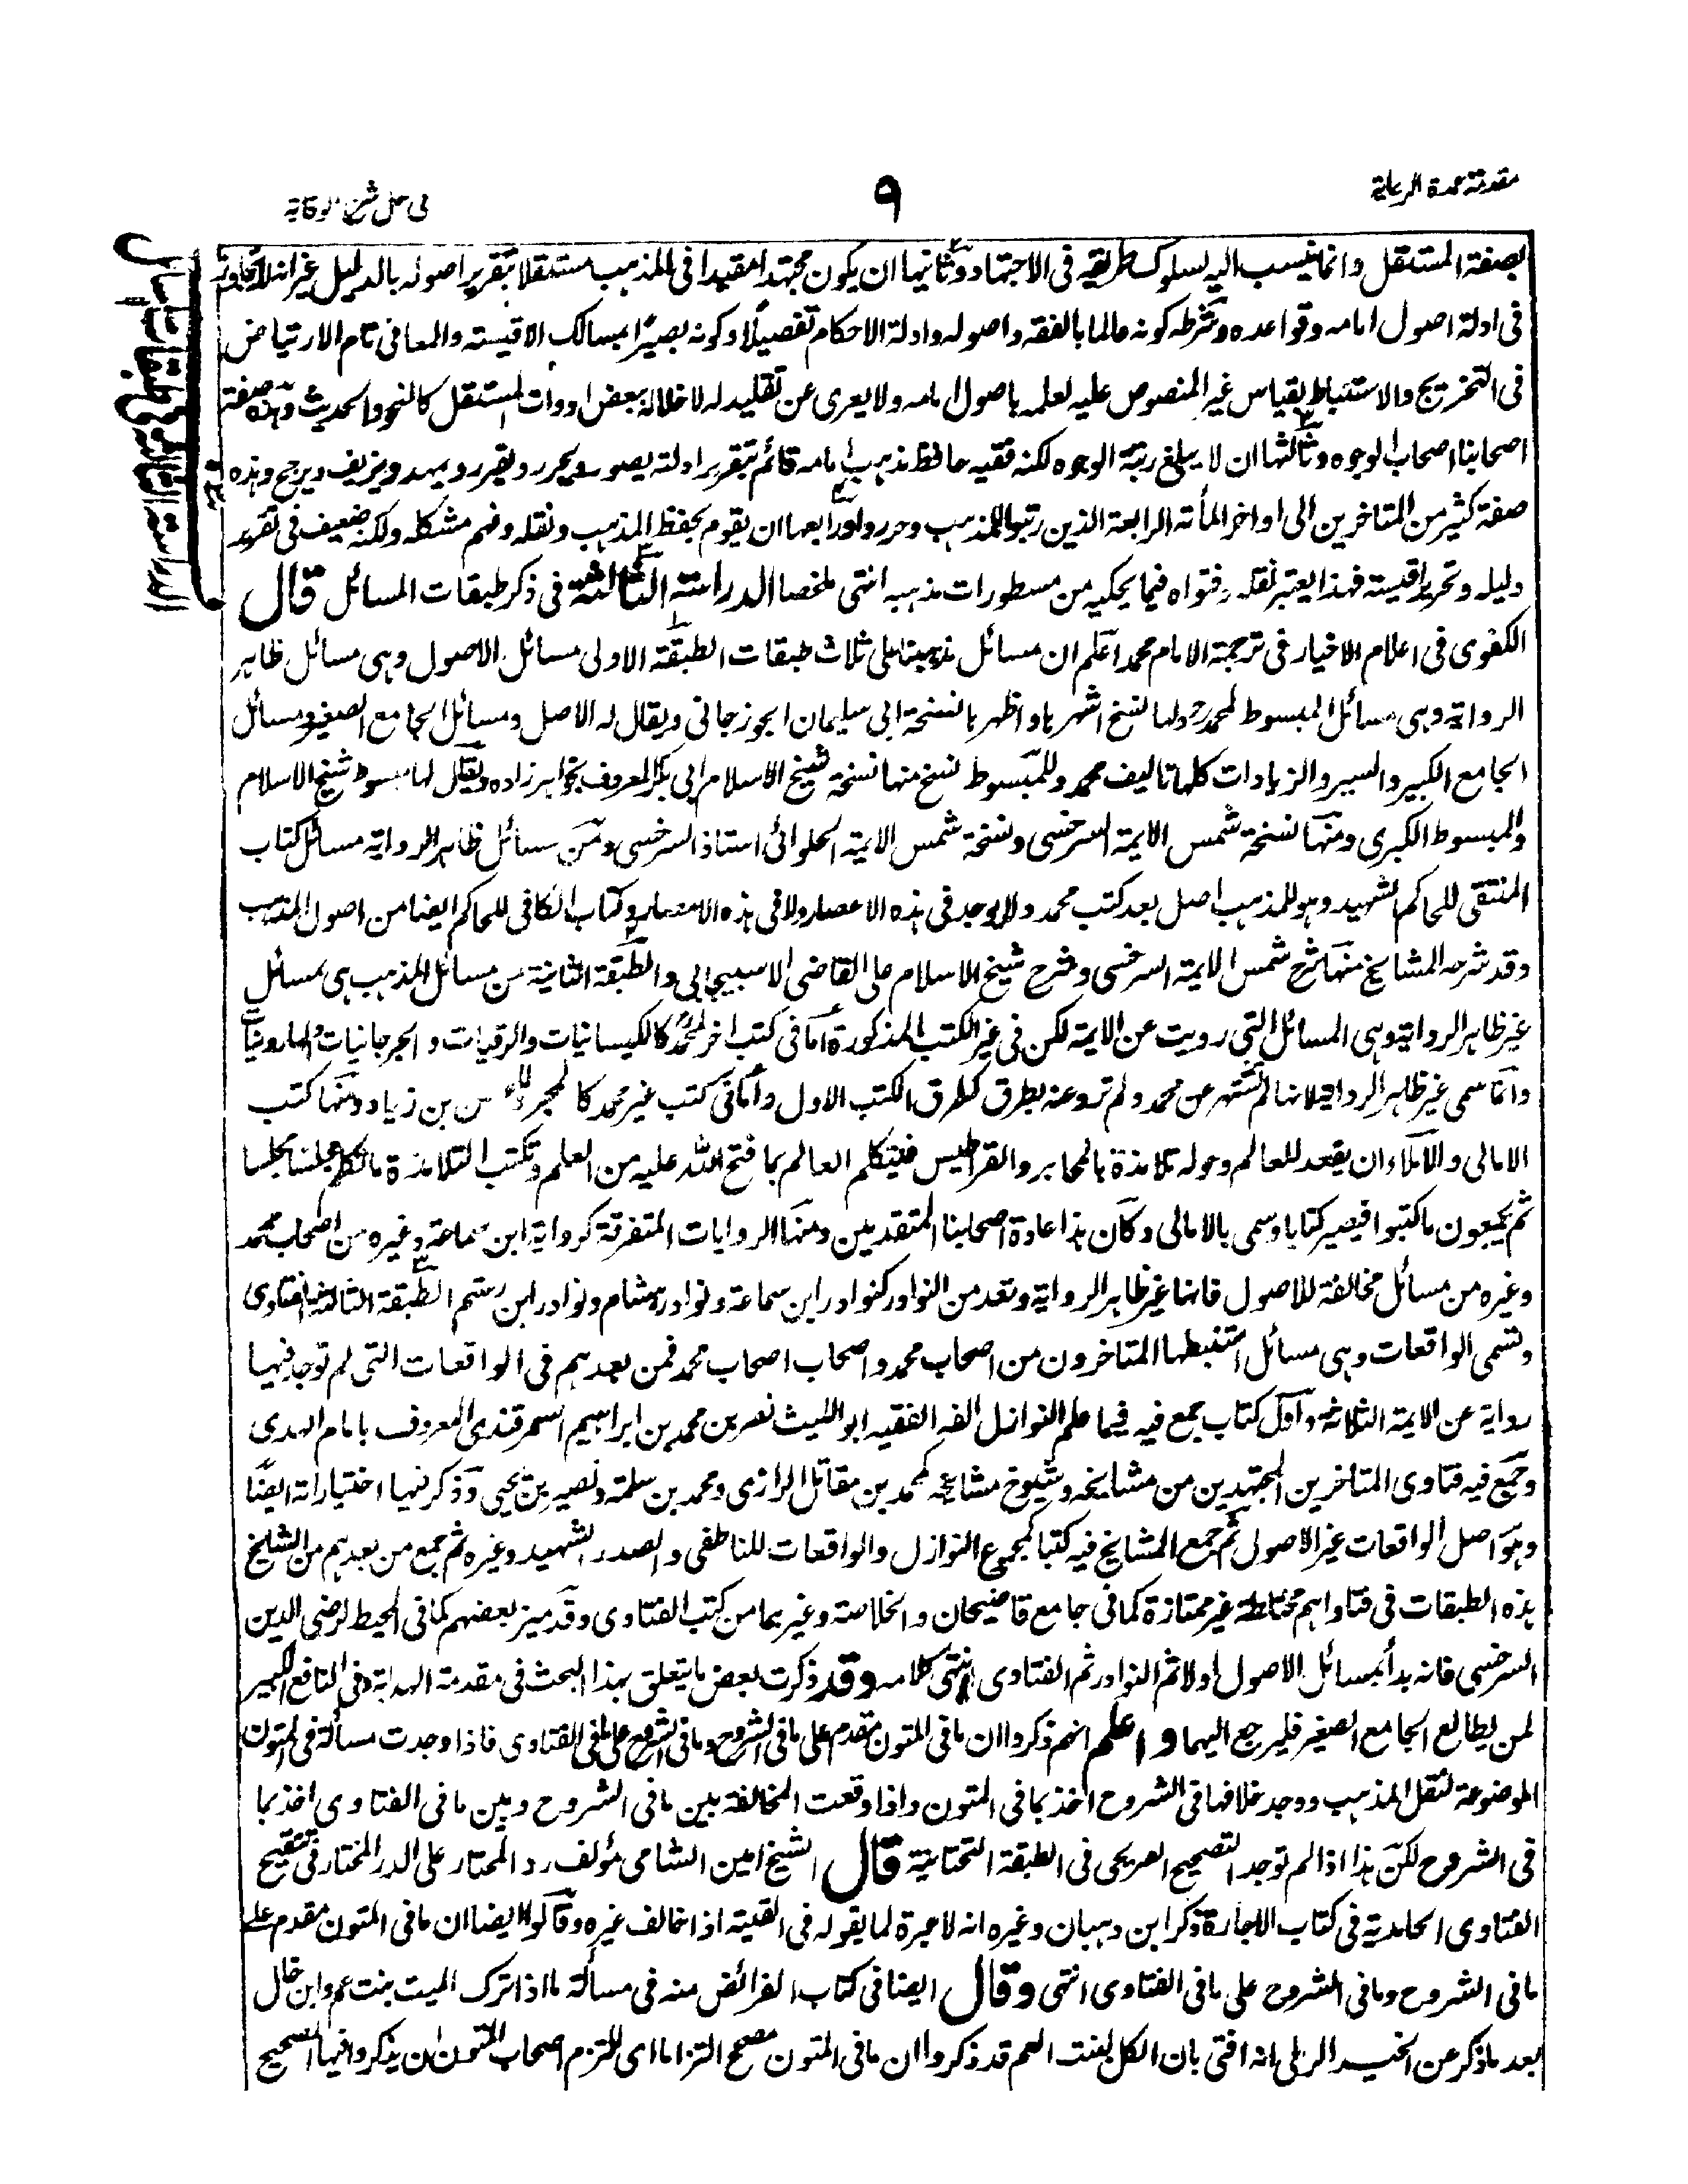 مقدمة عمدة الرعاية
٩
فى حل شرح الوقاية
بصفة المستقل وانما ينسب اليه لسلوك طريقه فى الاجتهاد وثانيها ان يكون مجتهدا مقيدا فى المذهب مستقلا بتقرير اصوله بالدليل غير انه لا يتجاوز
فى ادلته اصول امامه وقواعده وشرطه كونه عالما بالفقه واصوله وادلة الاحكام تفصيلا وكونه بصيرا بمسالك الاقيسة والمعانى تام الارتياض
فى التخريج والاستنباط بقياس غير المنصوص عليه لعلمه باصول امامه ولا يعرى عن تقليد له لاخلاله ببعض ادوات المستقل كالنحو والحديث وهذه صفة
اصحابنا اصحاب الوجوه وثالثها ان لا يبلغ رتبة الوجوه لكنه فقيه حافظ مذهب امامه قائم بتقرير ادلته يصور ويحرر ويقرر ويمهد ويزيف ويرجح وهذه
صفة كثير من المتاخرين الى اواخر المأته الرابعة الذين رتبوا المذهب وحرروا ورابعها ان يقوم بحفظ المذهب ونقله وفهم مشكله ولكنه ضعيف فى تقرير
دليله وتحرير اقيسته فهذا يعتبر نقله وفتواه فيما يحكيه من مسطورات مذهبه انتهى ملخصا الدراسة الثالثة فى ذكر طبقات المسائل قال
الكفوى فى اعلام الاخيار فى ترجمة الامام محمد اعلم ان مسائل مذهبنا على ثلاث طبقات الطبقة الاولى مسائل الاصول وهى مسائل ظاهر
الرواية وهى مسائل المبسوط لمحمد رح ولها نسخ اشهرها واظهرها نسخة ابى سليمان الجوزجانى ويقال له الاصل ومسائل الجامع الصغير ومسائل
الجامع الكبير والسير والزيادات كلها تاليف محمد وللمبسوط نسخ منها نسخة شيخ الاسلام ابى بكر المعروف بخواهر زاده ويقال لها مبسوط شيخ الاسلام
والمبسوط الكبرى ومنها نسخة شمس الايمة السرخسى ونسخة شمس الايمة الحلوائى استاذ السرخسى ومن مسائل ظاهر الرواية مسائل كتاب
المنتقى للحاكم الشهيد وهو للمذهب اصل بعد كتب محمد ولا يوجد فى هذه الاعصار ولا فى هذه الامصار وكتاب الكافى للحاكم ايضا من اصول المذهب
وقد شرحه المشايخ منها شرح شمس الايمة السرخسى وشرح شيخ الاسلام على القاضى الاسبيجابى والطبقة الثانية من مسائل المذهب هى مسائل
غير ظاهر الرواية وهى المسائل التى رويت عن الايمة لكن فى غير الكتب المذكورة اما فى كتب اخر لمحمد كالكيسانيات والرقيات والجرجانيات والهارونيات
وانما سمى غير ظاهر الرواية لانها لم تشتهر عن محمد ولم ترو عنه بطرق كطرق الكتب الاول واما فى كتب غير محمد كالمجرد للحسن بن زياد ومنها كتب
الامالى والاملاء ان يقعد للعالم وحوله تلامذة بالمحابر والقراطيس فيتكلم العالم بما فتح الله عليه من العلم وتكتب التلامذة ما تكلم مجلسا مجلسا
ثم يجمعون ما كتبوا فيصير كتابا وسمى بالامالى وكان هذا عادة اصحابنا المتقدمين ومنها الروايات المتفرقة كرواية ابن سماعة وغيره من اصحاب محمد
وغيره من مسائل مخالفة للاصول فانها غير ظاهر الرواية وتعد من النوادر كنوادر ابن سماعة ونوادر هشام ونوادر ابن رستم الطبقة الثالثة الفتاوى
وتسمى الواقعات وهى مسائل استنبطها المتاخرون من اصحاب محمد واصحاب اصحاب محمد فمن بعدهم فى الواقعات التى لم توجد فيها
رواية عن الايمة الثلاثة واول كتاب جمع فيه فيما علم النوازل الفه الفقيه ابو الليث نصر بن محمد بن ابراهيم السمرقندى المعروف بامام الهدى
وجمع فيه فتاوى المتاخرين المجتهدين من مشايخه وشيوخ مشايخه كمحمد بن مقاتل الرازى ومحمد بن سلمة ونصير بن يحيى وذكر فيها اختياراته ايضا
وهو اصل الواقعات غير الاصول ثم جمع المشايخ فيه كتبا كمجموع النوازل والواقعات للناطفى والصدر الشهيد وغيره ثم جمع من بعدهم من المشايخ
هذه الطبقات فى فتاواهم مختلطة غير ممتازة كما فى جامع قاضيخان والخلاصة وغيرهما من كتب الفتاوى وقد ميز بعضهم كما فى المحيط لرضى الدين
السرخسى فانه بدأ بمسائل الاصول اولا ثم النوادر ثم الفتاوى انتهى كلامه وقد ذكرت بعض ما يتعلق بهذا البحث فى مقدمة الهداية وفى النافع الكبير
لمن يطالع الجامع الصغير فليرجع اليهما واعلم انهم ذكروا ان ما فى المتون مقدم على ما فى الشروح وما فى الشروح على ما فى الفتاوى فاذا وجدت مسألة فى المتون
الموضوعة لنقل المذهب ووجد خلافها فى الشروح اخذ بما فى المتون واذا وقعت المخالفة بين ما فى الشروح وبين ما فى الفتاوى اخذ بما
فى الشروح لكن هذا اذا لم توجد التصحيح الصريحى فى الطبقة التحتانية قال الشيخ امين الشامى مؤلف رد المحتار على الدر المختار فى تنقيح
الفتاوى الحامدية فى كتاب الاجارة ذكر ابن وهبان وغيره انه لا عبرة لما يقوله فى القنية اذا خالف غيره وقالوا ايضا ان ما فى المتون مقدم على
ما فى الشروح وما فى الشروح على ما فى الفتاوى انتهى وقال ايضا فى كتاب الفرائض منه فى مسألة ما اذا ترك الميت بنت عم وابن خال
بعد ما ذكر عن الخير الرملى انه افتى بان الكل لبنت العم قد ذكروا ان ما فى المتون مصحح التزاما اى التزم اصحاب المتون ان يذكروا فيها الصحيح